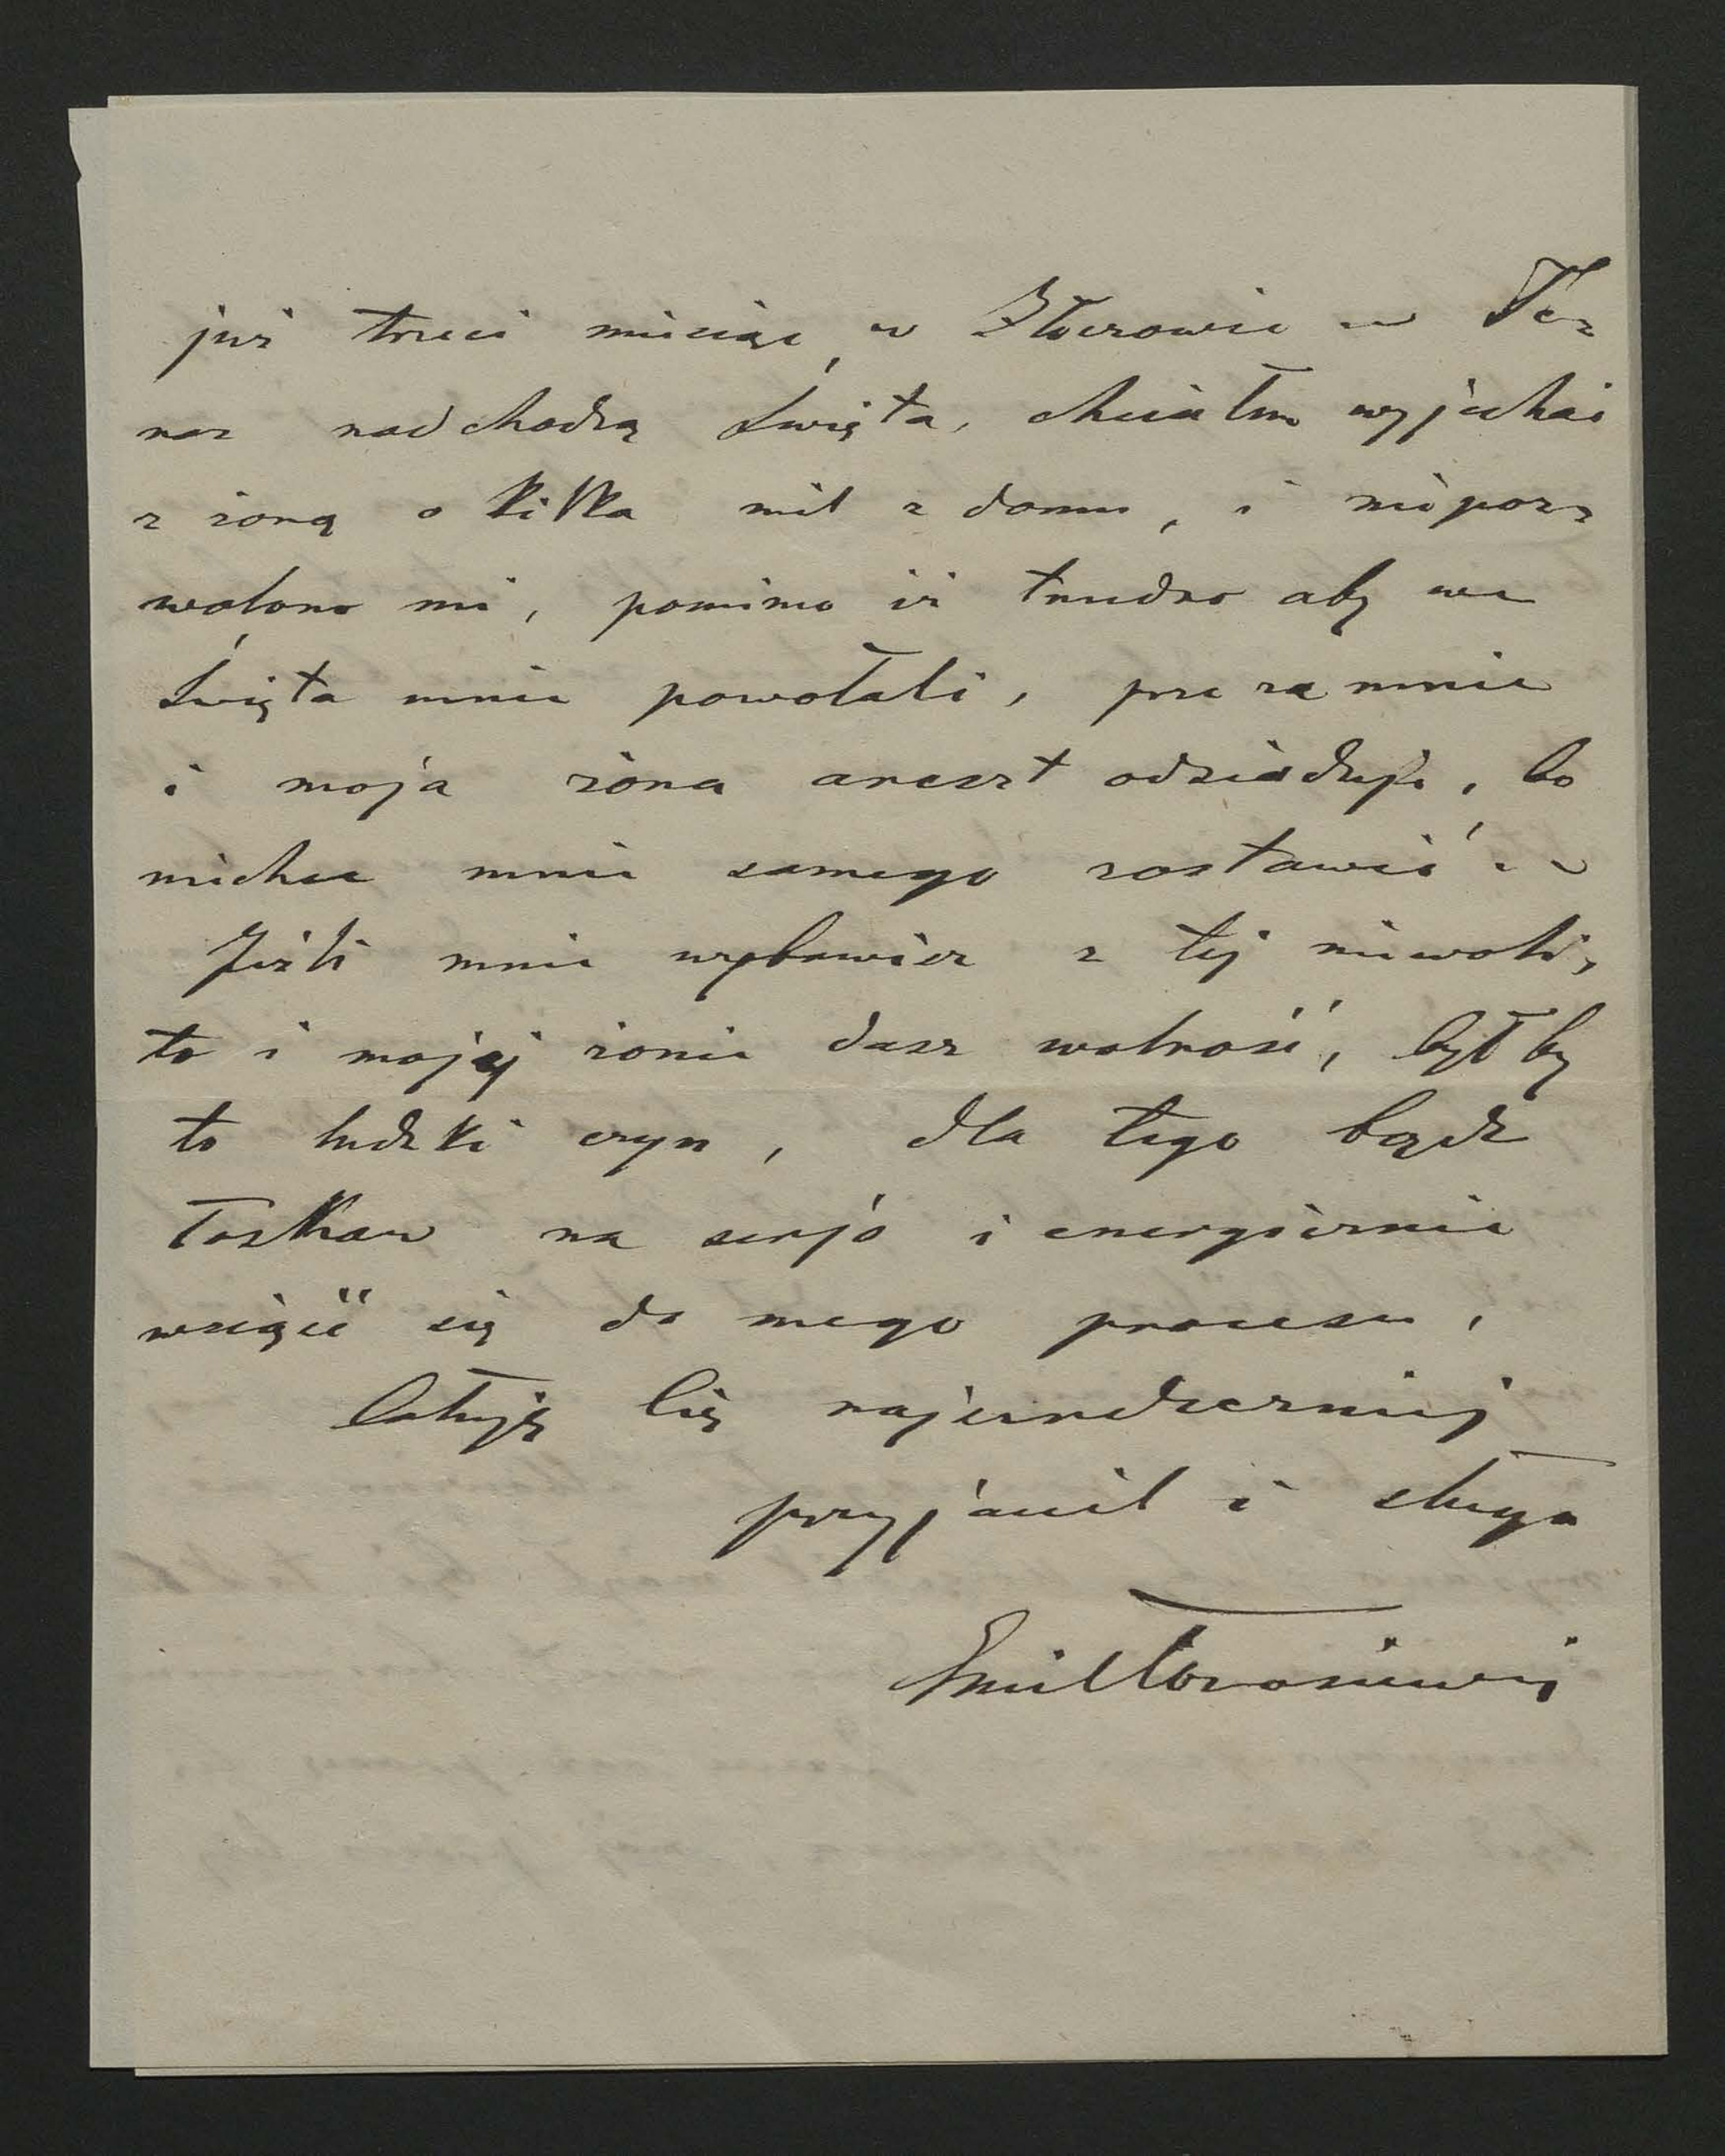 już trzeci miesiąc w Złoczowie — Te-
raz nadchodzą Święta, chciałem wyjechać
z żoną o kilka mil z domu, i niepoz-
wolono mi, pomimo iż trudno aby we
Święta mnie powołali, przezemnie
i moja żona areszt odsiaduje, bo
niechce mnie samego zostawić —
Jeżli mnie wybawisz z tej niewoli,
to i mojej żonie dasz wolność, był by
to ludzki czyn, dla tego bądź
łaskaw na serjo i energicznie
wziąść się do mego procesu,
Całuję Cię najserdeczniej
przyjaciel i sługa
Emil Torosiewicz